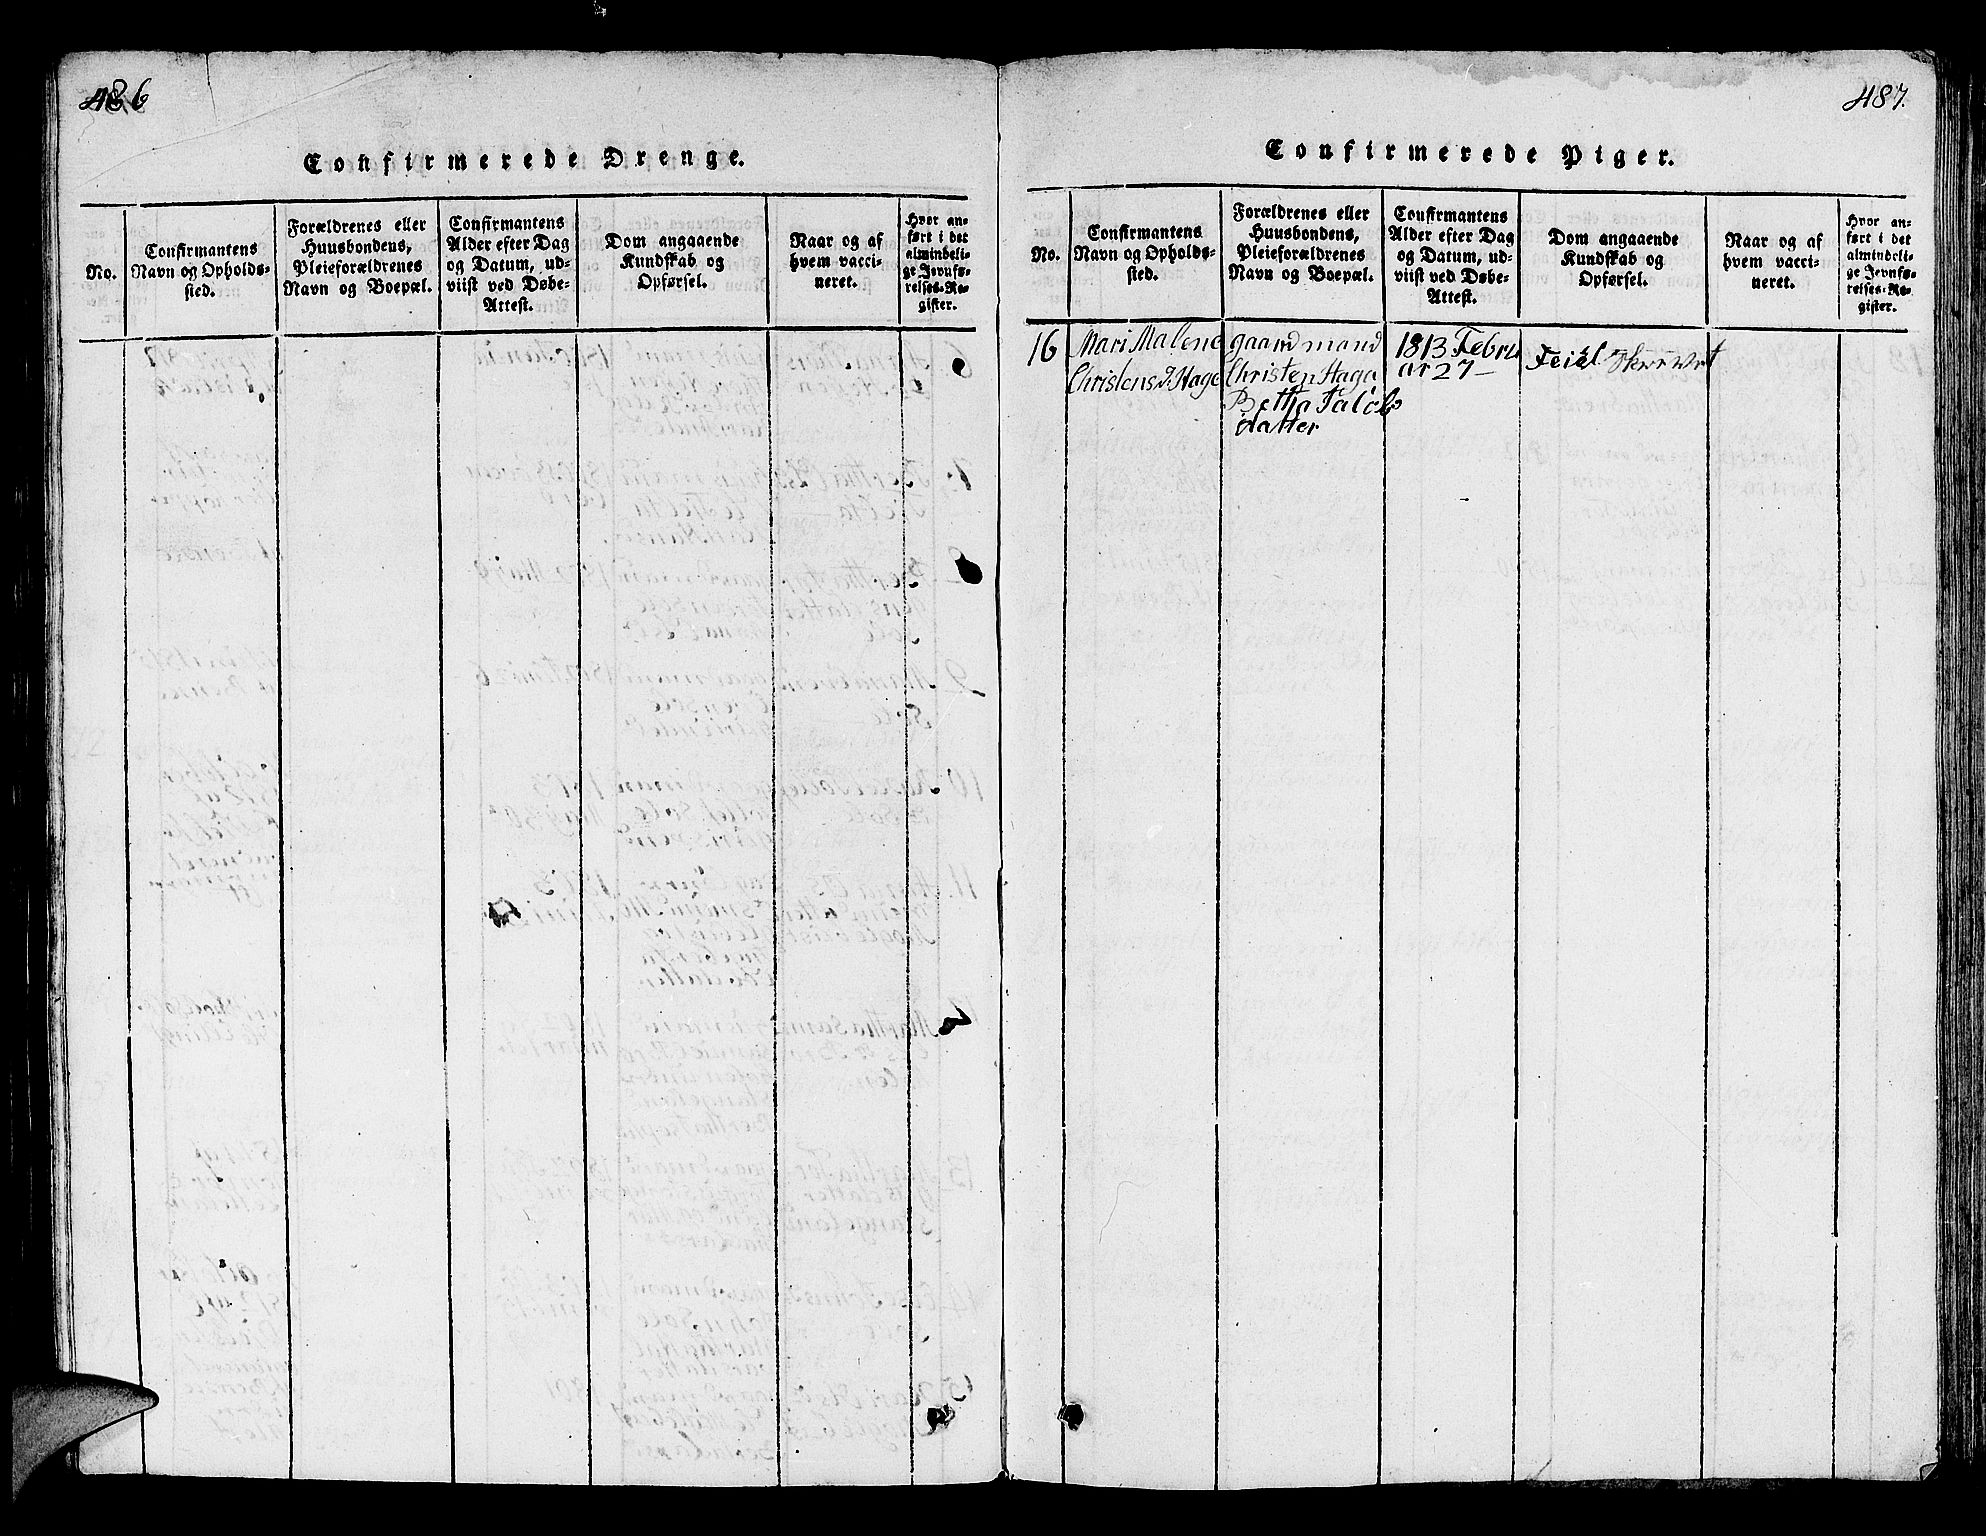 486
Confirmerede Drenge.
No.
Confirmantens
Navn og Opholds-
sted.
Forældrenes eller
Huusbondens,
Pleieforældrenes
Navn og Boepæl.
Confirmantens
Alder efter Dag
og Datum, ud-
viist ved Døbe-
Attest.
Dom angaaende
Kundskab og
Opførsel.
Naar og af
hvem vacci-
neret.
Hvor an-
ført i det
almindeli-
ge Jevnfø-
relses-Re-
gister.
487.
Confirmerede Piger.
No.
Confirmantens
Navn og Opholds-
sted.
Forældrenes eller
Huusbondens,
Pleieforældrenes
Navn og Boepæl.
Confirmantens
Alder efter Dag
og Datum, ud-
viist ved Døbe-
Attest.
Dom angaaende
Kundskab og
Opførsel.
Naar og af
hvem vacci-
neret.
Hvor an-
ført i det
almindeli-
ge Jevnfø-
relses-Re-
gister.
16
Mari Malene
Christens Hage
gaardmand
Christen Haga
Betha Jakobs
datter
1813 Febru
ar 27